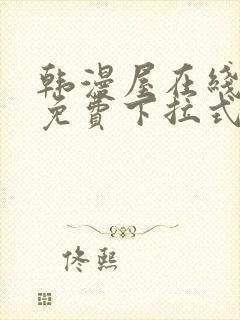 韩漫屋在线
免费下拉式
佟熙